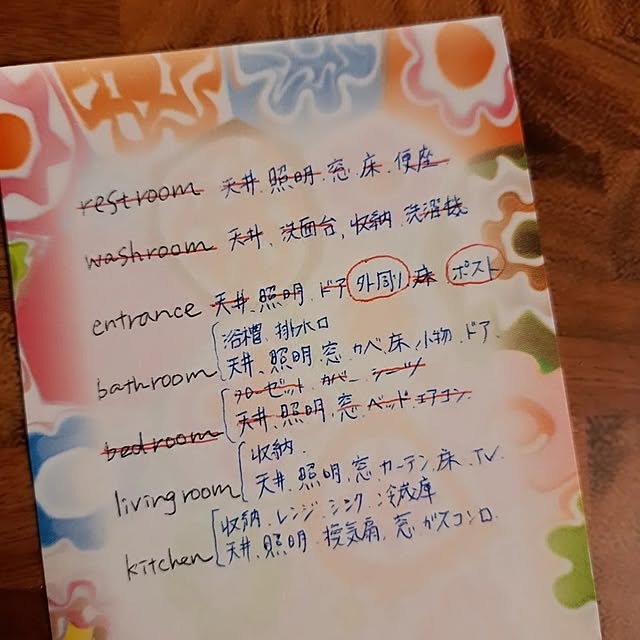 restroom 天井、照明、窓、床、便座
washroom 天井、洗面台、収納、洗濯機
entrance 天井、照明、ドア 外回り 床 ポスト
浴槽、排水口
bathroom 天井、照明、窓、カベ、床、小物、ドア
クローゼット、カバー、シーツ
bedroom 天井、照明、窓、ベッド、エアコン
収納、
livingroom 天井、照明、窓、カーテン、床、TV
収納、レンジ、シンク、冷蔵庫
kitchen 天井、照明、換気扇、窓、ガスコンロ